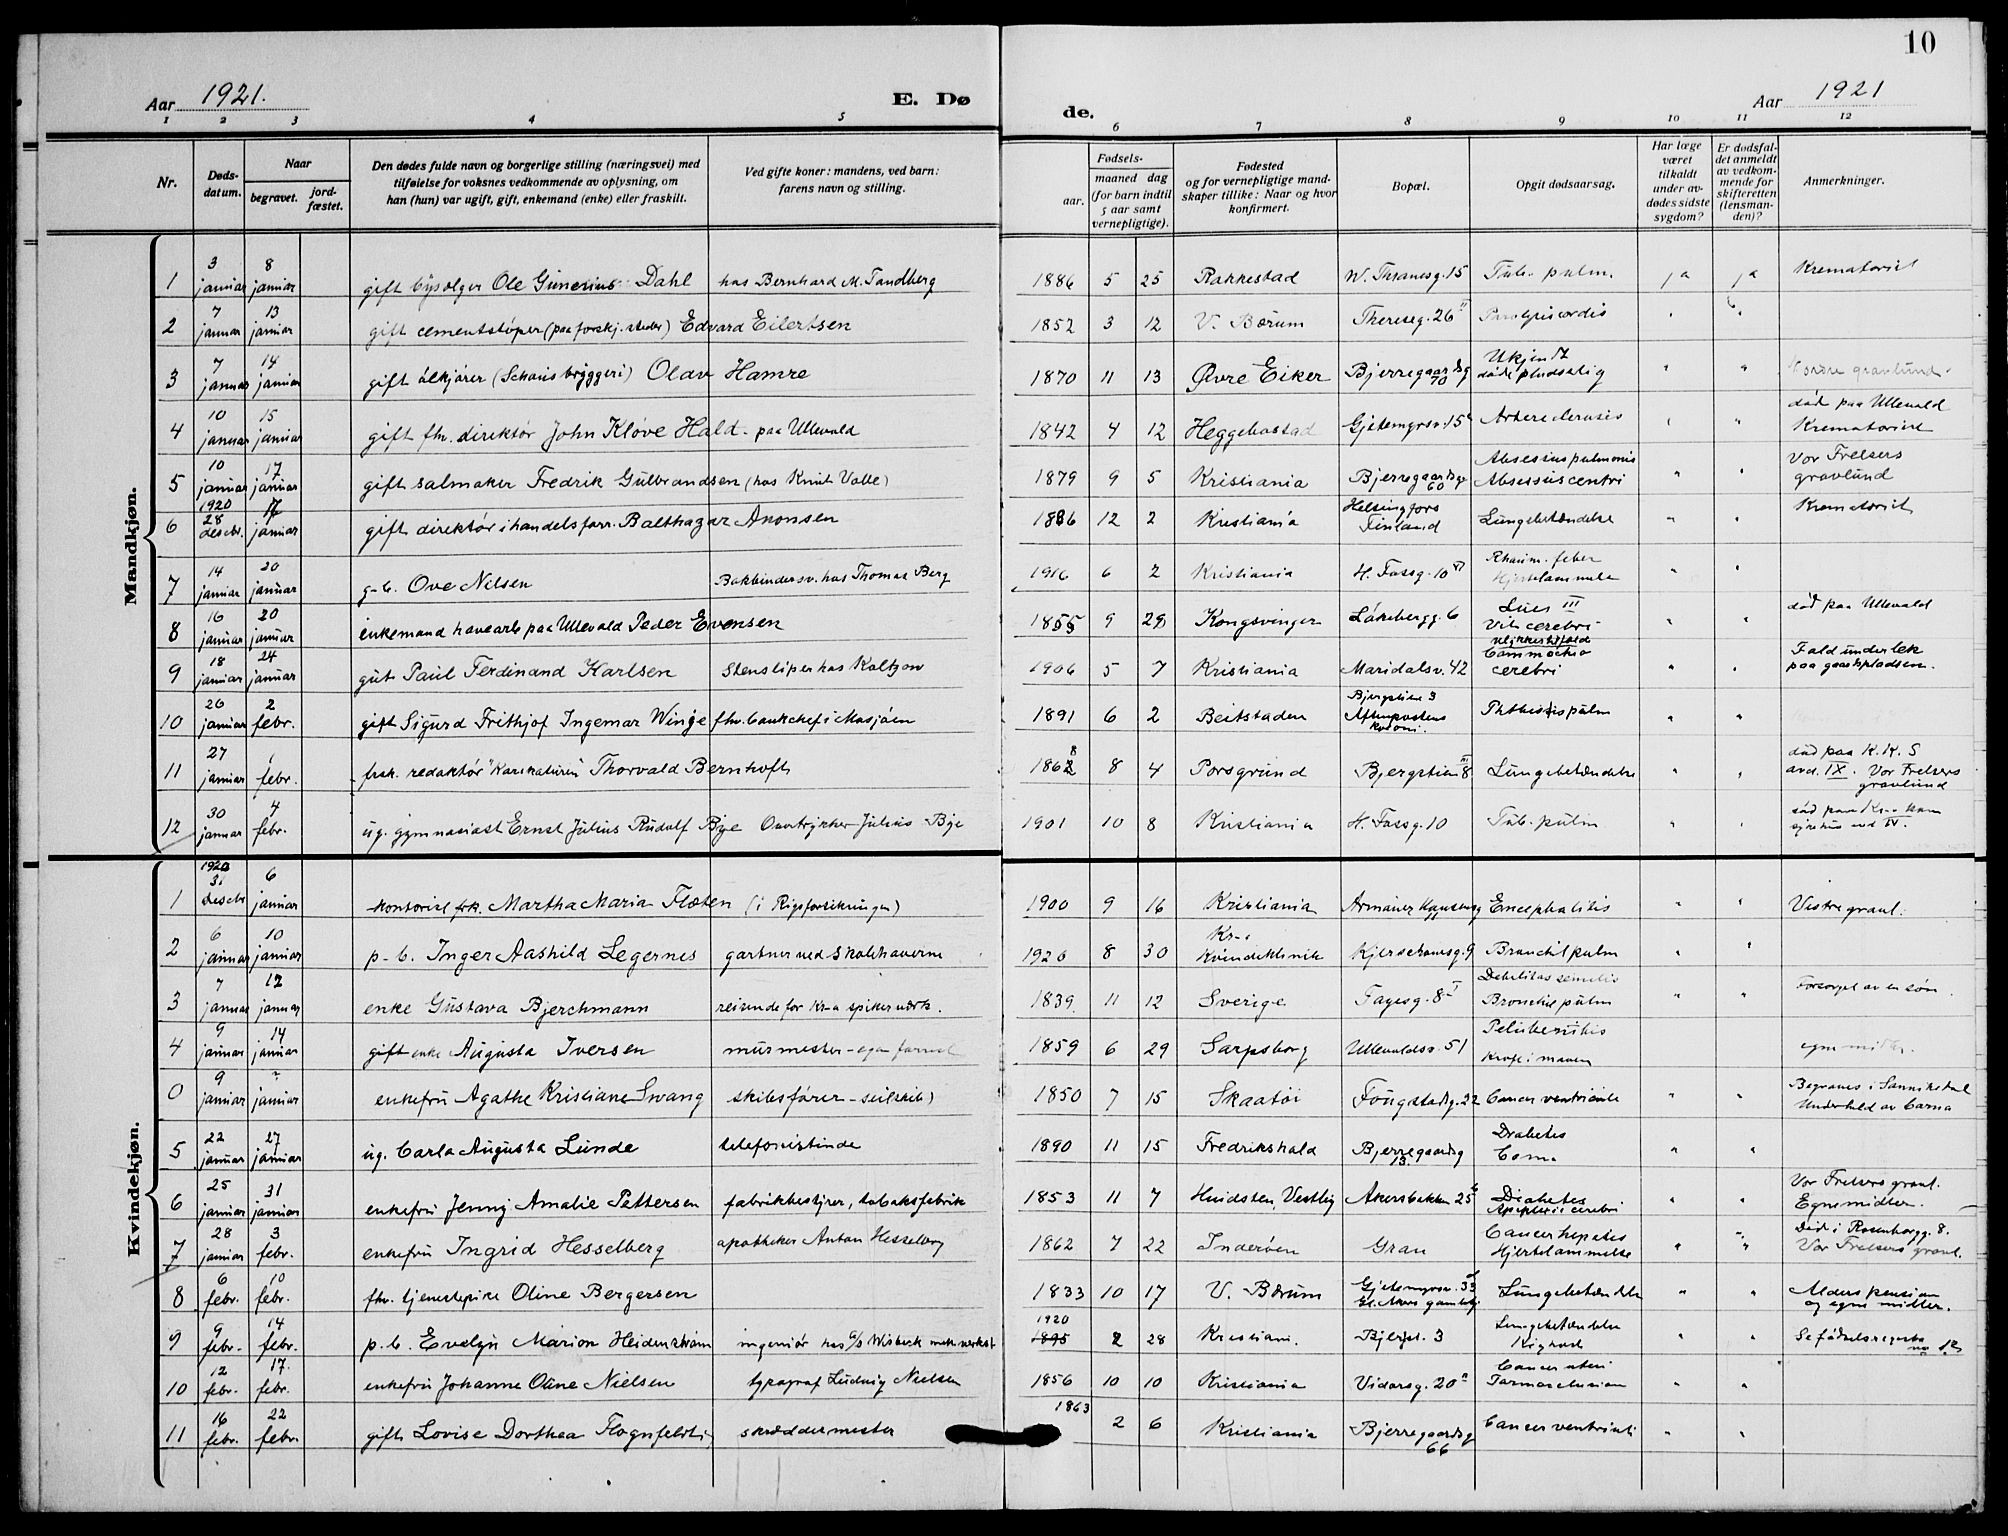 10
Aar 1921.
E. Dø
de.
Aar 1921
1 2 3 4 5 6 7 8 9 10 11 12
Nr.
Døds-
datum.
Naar
begravet.
jord-
fæstet.
Den dødes fulde navn og borgerlige stilling (næringsvei) med
tilføielse for voksnes vedkommende av oplysning, om
han (hun) var ugift, gift, enkemand (enke) eller fraskilt.
Ved gifte koner: mandens, ved barn:
farens navn og stilling.
Fødsels-
aar.
maaned dag
(for barn indtil
5 aar samt
vernepligtige).
Fødested
og for vernepligtige mand-
skaper tillike: Naar og hvor
konfirmert.
Bopæl.
Opgit dødsaarsag.
Har læge
været
tilkaldt
under av-
dødes sidste
sygdom?
Er dødsfal-
det anmeldt
av vedkom-
mende for
skifteretten
(lensman-
den)?
Anmerkninger.
Mandkjøn.
1 3 januar 8 januar gift Ole Gunerius Dahl hos Bernhard M. Tandberg 1886 5 25 Rakkestad W. Thranesg. 15 Tub. pulm. ja ja Krematoriet
2 7 januar 13 januar gift cementstøper (paa forskj. steder) Edvard Eilertsen 1852 3 12 V. Bærum Thereseg. 26 II Paralysis cordis " "
3 7 januar 14 januar gift ølkjører (Schous bryggeri) Olav Hamre 1870 11 13 Øvre Eiker Bjerregaardsg 70 Ukjendt døde pludselig " " Nordre gravlund.
4 10 januar 15 januar gift fhv. direktør John Kløve Hald - paa Ullevold 1842 4 12 Heggebostad Gjetemyrsv. 15 " " død paa Ullevold Krematoriet
5 10 januar 17 januar gift salmaker Fredrik Gulbrandsen (hos Knut Valle) 1879 9 5 Kristiania Bjerregaardsg 60 Absessus pulmonis Absessus centri " " Vor Frelsers gravlund
6 1920 28 desebr. 17 januar gift direktør i handelsforr. Balthazar Anonsen 1886 12 2 Kristiania Helsingfors Finland Lungebetændelse " " Krematoriet
7 14 januar 20 januar g-b. Ove Nilsen Bokbindersv. hos Thomas Berg 1916 6 2 Kristiania H. Fossg. 10 Rheum. feber Hjertelammelse " "
8 16 januar 20 januar enkemand havearb paa Ullevold Peder Evensen 1855 9 29 Kongsvinger Lakebergg. 6 Lues III Vit. cerebri " " død paa Ullevold
9 18 januar 24 januar gut Paul Ferdinand Karlsen Stensliper hos 1906 5 7 Kristiania Maridalsv. 42 Ulykkestilfæld Commotio cerebri " " Fald under lek paa gaardspladsen.
10 26 januar 2 febr. gift Sigurd Frithjof Ingemar Winge fhv. bankchef i Mosjøen 1891 6 2 Beitstaden Bjergstien 3 Aftenpostens koloni. Phthisis pulm " "
11 27 januar 1 febr. frsk. redaktør "Karikaturen" Thorvald Bernhoft 1868 8 4 Porsgrund Bjergstien 8 III Lungebetændelse " " død paa K. K. S avd. IX. Vor Frelsers gravlund
12 30 januar 4 febr. ug. gymnasiast Ernst Julius Rudolf Bye Julius Bye 1901 10 8 Kristiania H. Fossg. 10 Tub. pulm " " død paa Kr-a kom sykehus avd IV.
Kvindekjøn.
1 1920 31 desebr 6 januar kontorist frk. Martha Maria Floten (i Rigsforsikringen) 1900 9 16 Kristiania Armauer Encephalitis " " Vestre gravl.
2 6 januar 10 januar p-b. Inger Aashild Legernes gartner ved Skolehaverne 1920 8 30 Kr-a Kvindeklinik Kjerschowsg. 9 Bronchit pulm " "
3 7 januar 12 januar enke Gustava Bjerchmann reisende for Kr-a spikerverk. 1839 11 12 Sverige Fayesg. 8 I Debelitas senilis Bronchit pulm " " Forsørget av en søn
4 9 januar 14 januar gift enke Augusta Iversen murmester - 1859 6 29 Sarpsborg Ullevoldsv. 51 Kræft i maven egne midler.
0 9 januar ? januar enkefru Agathe Kristiane Swang skibsfører - seilskib) 1850 7 15 Skaatøi Fougstadsg. 22 Cancer ventriculi " " Begraves i Sannikedal Underhold av barna
5 22 januar 27 januar ug. Carla Augusta Lunde telefonistinde 1890 11 15 Fredrikshald Bjerregaardsg 13 Diabetes Coma " "
6 25 januar 31 januar enkefru Jenny Amalie Pettersen fabrikbestyrer, tobaksfabrik 1853 11 7 Akersbakken 25 Diabetes Apoplexi cerebri " " Vor Frelsers gravl. Egne midler.
7 28 januar 3 febr. enkefru Ingrid Hesselberg apotheker Anton Hesselberg 1862 7 22 Inderøen Gran Cancer hepatis Hjertelammelse " " Død i Rosenborgg. 8. Vor Frelsers gravl.
8 6 febr. 10 febr. fhv. tjenestepike Oline Bergersen 1833 10 17 V. Bærum Gjetemyrsv. 33 Gl. Akers gamlehj Lungebetændelse " " Alderspension og egne midler.
9 9 febr. 14 febr. p. b. Evelyn Marion Heidenstrøm ingeniør hos 1920 1895 2 28 Kristiani. Bjergst. 3 Lungebetændelse Kighoste " " Se fødselsregistr no 12
10 12 febr. 17. febr. enkefru Johanne Oline Nielsen typograf Ludvig Nielsen 1856 10 10 Kristiania Vidarsg. 20 II Cancer uteri " "
11 16 febr. 22 febr. gift Lovise Dorthea skræddermester 1863 2 6 Kristiania Bjerregaardsg 66 Cancer ventriculi " "